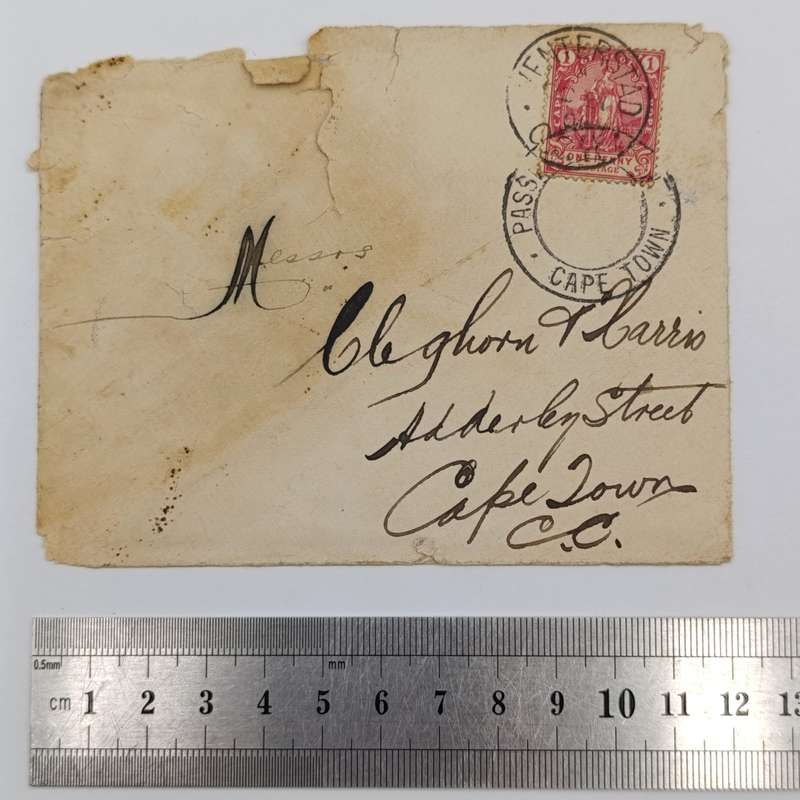 VENTERSTAD
1 1
CAPE
ONE PENNY
POSTAGE
PASS
CAPE TOWN
Messrs
Cleghorn & Harris
Adderley Street
Cape Town
C.C.
0.5mm mm
cm 1 2 3 4 5 6 7 8 9 10 11 12 13